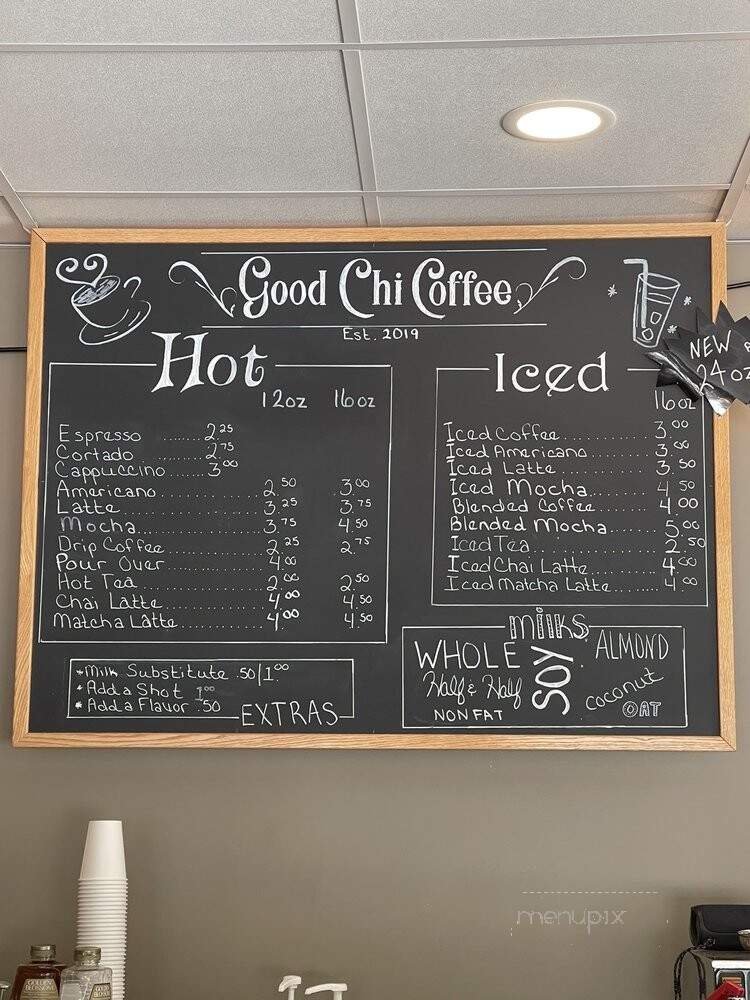 Good Chi Coffee
Est. 2019
Hot
12oz 16oz
Espresso ....... 2.25
Cortado ..... 2.75
Cappuccino ..... 3.00
Americano ..... 2.50 3.00
Latte ..... 3.25 3.75
Mocha ..... 3.75 4.50
Drip Coffee ..... 2.25 2.75
Pour Over ..... 4.00
Hot Tea ..... 2.00 2.50
Chai Latte ..... 4.00 4.50
Matcha Latte ..... 4.00 4.50
*Milk Substitute .50/1.00
*Add a Shot 1.00
*Add a Flavor .50
EXTRAS
Iced
NEW
24 oz
16oz
Iced Coffee ..... 3.00
Iced Americano ..... 3.00
Iced Latte ..... 3.50
Iced Mocha ..... 4.50
Blended Coffee ..... 4.00
Blended Mocha ..... 5.00
Iced Tea ..... 2.50
Iced Chai Latte ..... 4.00
Iced Matcha Latte ..... 4.00
milks
WHOLE SOY ALMOND
Half & Half coconut
NONFAT OAT
menupix
GOLDEN BLOSSOM
GOLDEN BLOSSOM